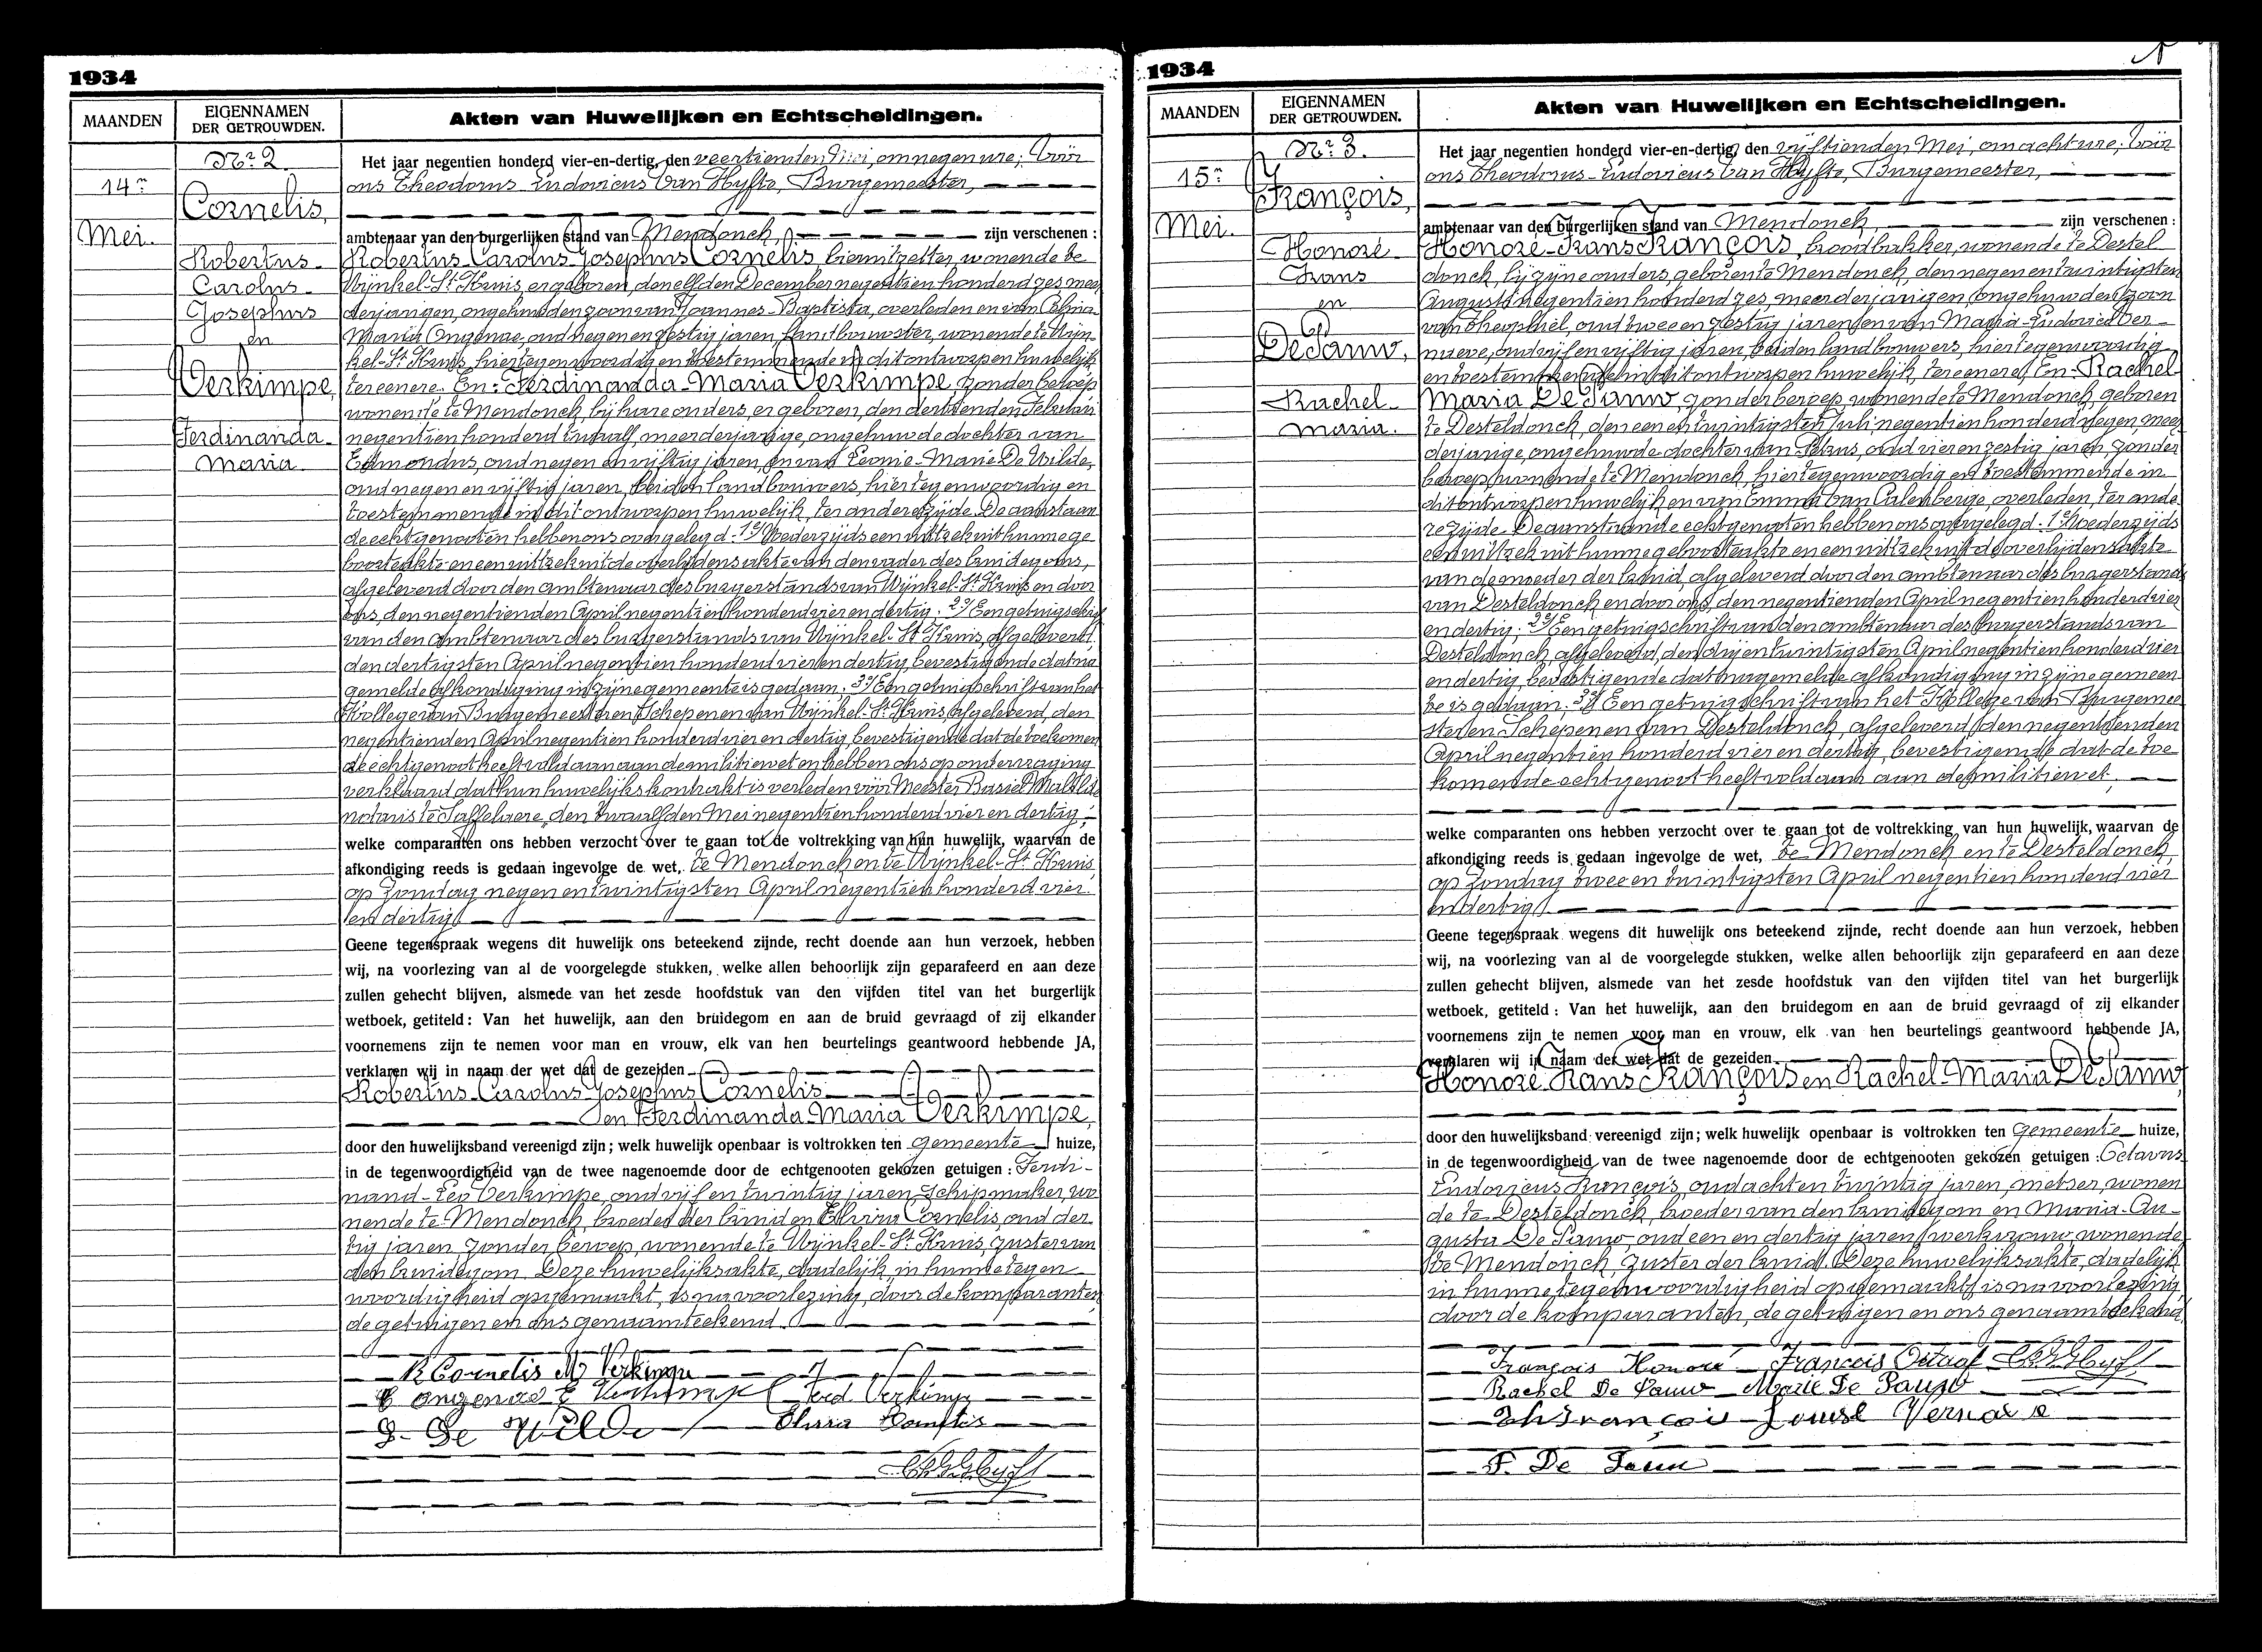 1934
MAANDEN
EIGENNAMEN
DER GETROUWDEN.
Akten van Huwelijken en Echtscheidingen.
Nr 2
14n
Mei.
Cornelis,
Robertus
Carolus
Josephus
en
Verkimpe,
Ferdinanda
Maria
Het jaar negentien honderd vier-en-dertig, den veertienden Mei, om negen ure; Vóór
ons Theodorus Ludovicus Van Hyfte, Burgemeester,
ambtenaar van den burgerlijken stand van Mendonck, zijn verschenen :
Robertus Carolus Josephus Cornelis, wonende te
Wynkel-St Kruis, er geboren, den elfden December negentien honderd zes, meer
derjarigen, ongehuwden zoon van Joannes-Baptista, overleden en van
Maria Ongenae, oud negen en zestig jaren, landbouwster, wonende te Wyn-
kel-St Kruis, hiertegenwoordig en toestemmende in dit ontworpen huwelijk
ter eenere. En: Ferdinanda-Maria Verkimpe, zonder beroep
wonende te Mendonck, bij hare ouders, er geboren, den dertienden Februari
negentien honderd twaalf, meerderjarige, ongehuwde dochter van
Edmondus, oud negen en vijftig jaren, en van Leonie-Marie De Wilde,
oud negen en vijftig jaren, beiden landbouwers, hiertegenwoordig en
toestemmende in dit ontworpen huwelijk, ter andere zijde. De aanstaan
de echtgenooten hebben ons overgelegd: 1e/ Wederzijds een uittrek uit hunne ge
boorteakte en een uittrek uit de overlijdensakte van den vader des bruidegoms,
afgeleverd door den ambtenaar des burgerstands van Wynkel-St Kruis en door
ons, den negentienden April negentien honderd vier en dertig; 2e/ Een getuigschrift
van den ambtenaar des burgerstands van Wynkel-St Kruis, afgeleverd
den dertigsten April negentien honderd vier en dertig, bevestigende dat na
gemelde afkondiging in zijne gemeente is gedaan; 3e/ Een getuigschrift van het
Kollege van Burgemeester en Schepenen van Wynkel-St Kruis, afgeleverd, den
negentienden April negentien honderd vier en dertig, bevestigende dat de toekomen
de echtgenoot heeft voldaan aan de militiewet en hebben ons op ondervraging
verklaard dat hun huwelijkskontrakt is verleden vóór Meester Basiel
notaris te Saffelaere, den twaalfden Mei negentien honderd vier en dertig;
welke comparanten ons hebben verzocht over te gaan tot de voltrekking van hun huwelijk, waarvan de
afkondiging reeds is gedaan ingevolge de wet, te Mendonck en te Wynkel-St Kruis,
op Zondag negen en twintigsten April negentien honderd vier
en dertig
Geene tegenspraak wegens dit huwelijk ons beteekend zijnde, recht doende aan hun verzoek, hebben
wij, na voorlezing van al de voorgelegde stukken, welke allen behoorlijk zijn geparafeerd en aan deze
zullen gehecht blijven, alsmede van het zesde hoofdstuk van den vijfden titel van het burgerlijk
wetboek, getiteld : Van het huwelijk, aan den bruidegom en aan de bruid gevraagd of zij elkander
voornemens zijn te nemen voor man en vrouw, elk van hen beurtelings geantwoord hebbende JA,
verklaren wij in naam der wet dat de gezeiden
Robertus Carolus Josephus Cornelis
en Ferdinanda Maria Verkimpe,
door den huwelijksband vereenigd zijn ; welk huwelijk openbaar is voltrokken ten Gemeente huize,
in de tegenwoordigheid van de twee nagenoemde door de echtgenooten gekozen getuigen : Ferdi-
nand-Leo Verkimpe, oud vijf en twintig jaren, schipmaker, wo
nende te Mendonck, broeder der bruid en Elvira Cornelis, oud der
tig jaren, zonder beroep, wonende te Wynkel-St Kruis, zuster van
den bruidegom. Deze huwelijksakte, dadelijk, in hunne tegen
woordigheid opgemaakt, is na voorlezing, door de komparanten,
de getuigen en ons genaamteekend.
R Cornelis M Verkimpe
C Ongenae E Verkimpe Ferd Verkimpe
L. De Wilde Elvira Cornelis
1934
MAANDEN
EIGENNAMEN
DER GETROUWDEN.
Akten van Huwelijken en Echtscheidingen.
Nr 3.
15n
Mei.
François,
Honoré
Frans
en
De Pauw,
Rachel
Maria.
Het jaar negentien honderd vier-en-dertig, den vijftienden Mei, om acht ure; Vóór
ons Theodorus-Ludovicus Van Hyfte, Burgemeester,
ambtenaar van den burgerlijken stand van Mendonck, zijn verschenen :
Honoré-Frans François, broodbakker, wonende te Destel
donck, bij zijne ouders, geboren te Mendonck, den negen en twintigsten
Augusti negentien honderd zes, meerderjarigen, ongehuwden zoon
van Theophiel, oud twee en zestig jaren, en van Maria-Ludovica Ver-
naeve, oud vijf en vijftig jaren, beiden landbouwers, hiertegenwoordig
en toestemmende in dit ontworpen huwelijk, ter eenere, En: Rachel
Maria De Pauw, zonder beroep, wonende te Mendonck, geboren
te Desteldonck, den een en twintigsten Juli negentien honderd negen, meer
derjarige ongehuwde dochter van Petrus, oud vier en zestig jaren, zonder
beroep, wonende te Mendonck, hiertegenwoordig en toestemmende in
dit ontworpen huwelijk en van Emma Van Calenberge, overleden, ter ande
re zijde. De aanstaande echtgenooten hebben ons overgelegd: 1e/ Wederzijds
een uittrek uit hunne geboorteakte en een uittrek uit de overlijdensakte
van de moeder der bruid, afgeleverd door den ambtenaar des burgerstands
van Desteldonck en door ons, den negentienden April negentien honderd vier
en dertig; 2e/ Een getuigschrift van den ambtenaar des burgerstands van
Desteldonck, afgeleverd, den drij en twintigsten April negentien honderd vier
en dertig, bevestigende dat nagemelde afkondiging in zijne gemeen
te is gedaan; 3e/ Een getuigschrift van het Kollege van Burgemee
ster en Schepenen van Desteldonck, afgeleverd, den negentienden
April negentien honderd vier en dertig, bevestigende dat de toe
komende echtgenoot heeft voldaan aan de militiewet;
welke comparanten ons hebben verzocht over te gaan tot de voltrekking van hun huwelijk, waarvan de
afkondiging reeds is gedaan ingevolge de wet, te Mendonck en te Desteldonck,
op Zondag twee en twintigsten April negentien honderd vier
en dertig
Geene tegenspraak wegens dit huwelijk ons beteekend zijnde, recht doende aan hun verzoek, hebben
wij, na voorlezing van al de voorgelegde stukken, welke allen behoorlijk zijn geparafeerd en aan deze
zullen gehecht blijven, alsmede van het zesde hoofdstuk van den vijfden titel van het burgerlijk
wetboek, getiteld : Van het huwelijk, aan den bruidegom en aan de bruid gevraagd of zij elkander
voornemens zijn te nemen voor man en vrouw, elk van hen beurtelings geantwoord hebbende JA,
verklaren wij in naam der wet dat de gezeiden
Honoré Frans François en Rachel Maria De Pauw,
door den huwelijksband vereenigd zijn ; welk huwelijk openbaar is voltrokken ten Gemeente huize,
in de tegenwoordigheid van de twee nagenoemde door de echtgenooten gekozen getuigen : Octavus
Ludovicus François, oud acht en twintig jaren, metser, wonen
de te Desteldonck, broeder van den bruidegom en Maria-Au-
gusta De Pauw, oud een en dertig jaren, werkvrouw, wonende
te Mendonck, zuster der bruid. Deze huwelijksakte, dadelijk
in hunne tegenwoordigheid opgemaakt, is na voorlezing
door de komparanten, de getuigen en ons genaamteekend.
François Honoré François Octaaf
Rachel De Pauw Marie De Pauw
Th François Louise Vernaeve
P. De Pauw